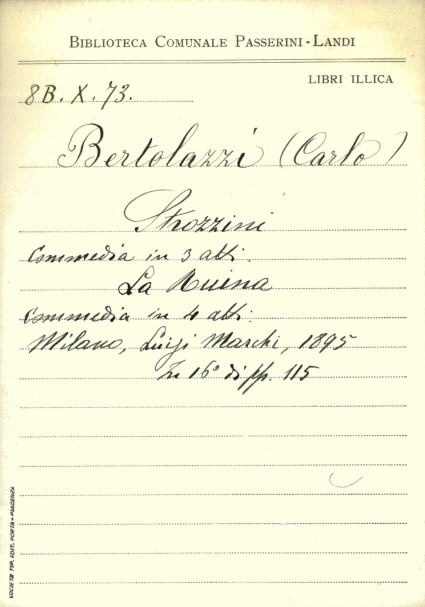 BIBLIOTECA COMUNALE PASSERINI-LANDI
LIBRI ILLICA
8B. X. 73.
Bertolazzi (Carlo)
Strozzini
Commedia in 3 atti.
La Ruina
Commedia in 4 atti.
Milano, Luigi Marchi, 1895
In 16° di pp. 115
SOCIETÀ TIP. EDIT. PORTA - PIACENZA